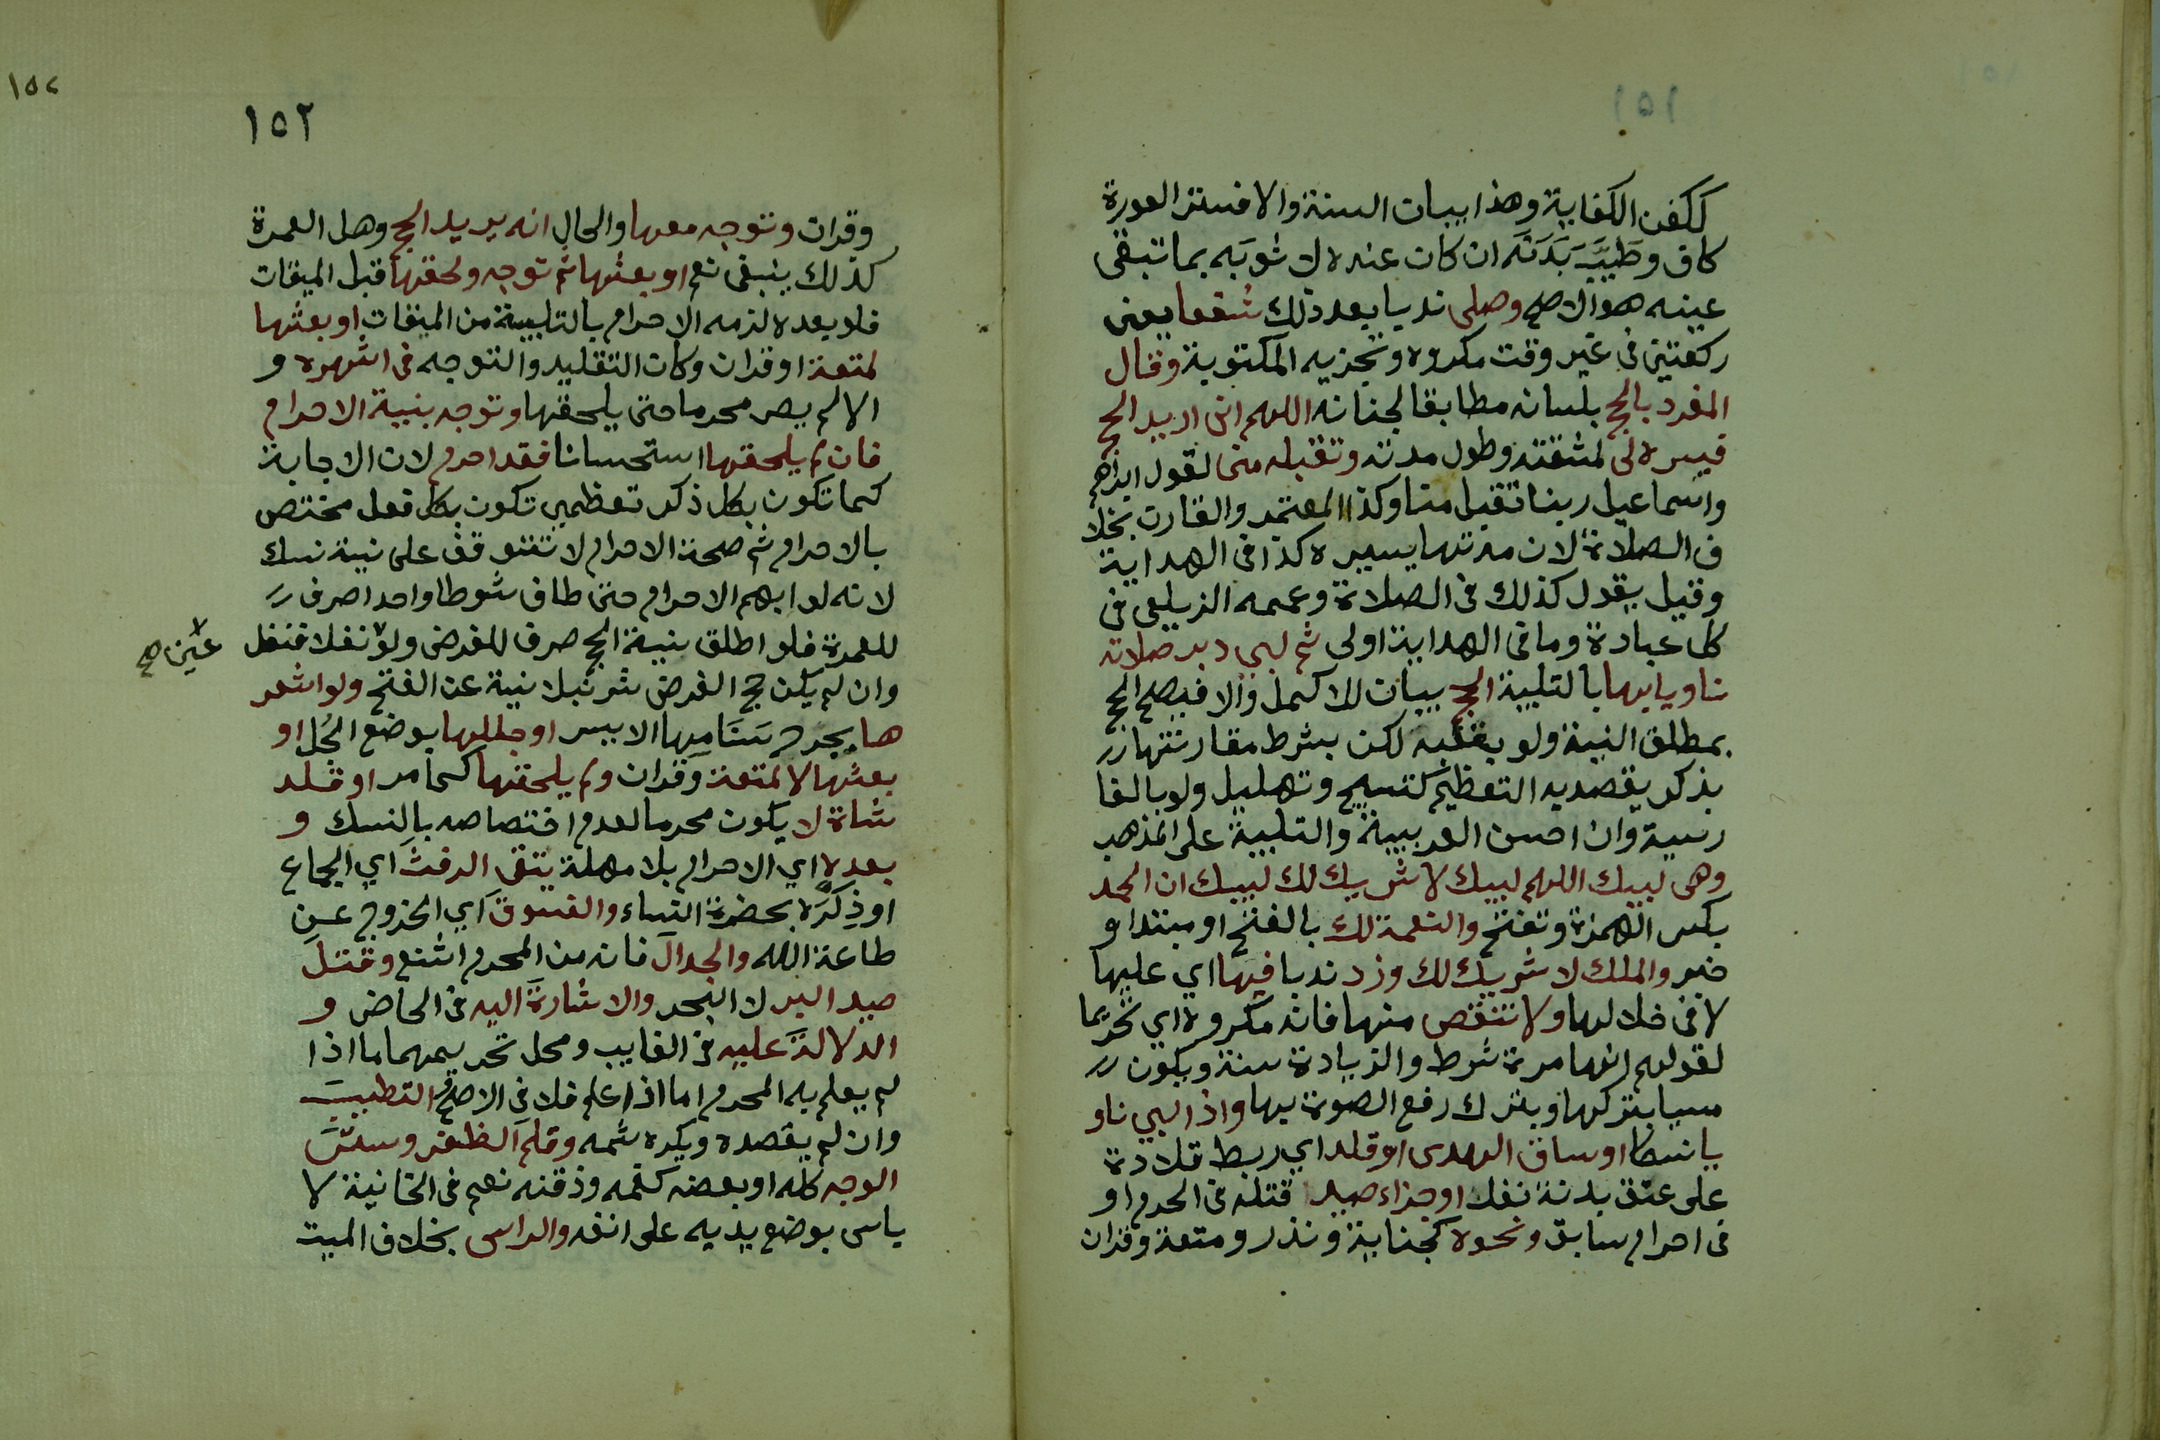 ككفن الكفاية وهذا بيان السنة والا فستر العورة
كاف وطَيَّبَ بَدَنَه ان كان عنده لا ثوبَه بما تبقى
عينه هو الاصح وصلى ندبا بعد ذلك شفعا يعنى
ركعتين فى غير وقت مكروه وتجزيه المكتوبة وقال
المفرد بالحج بلسانه مطابقا لجنانه اللهم انى اريد الحج
فيسره لى لمشقته وطول مدته وتقبله منى لقول ابراهيم
واسماعيل ربنا تقبل منا وكذا المعتمر والقارن بخلا
ف الصلاة لان مدتها يسيرة كذا فى الهداية
وقيل يقول كذلك فى الصلاة وعممه الزيلعى فى
كل عبادة وما فى الهداية اولى ثم لبى دبر صلاته
ناويا بها بالتلبية الحج بيان للاكمل والا فيصح الحج
بمطلق النية ولو بقلبه لكن بشرط مقارنتها
بذكر يقصد به التعظيم كتسبيح وتهليل ولو بالفا
رسية وان احسن العربيية والتلبية على المذهب
وهى لبيك اللهم لبيك لا شريك لك لبيك ان الحمد
بكسر الهمزة وتفتح والنعمة لك بالفتح او مبتدا و
خبر والملك لا شريك لك وزد ندبا فيها اي عليها
لا فى خلالها ولا تنقص منها فانه مكروه اي تحريما
لقولهم انها مرة شرط والزيادة سنة ويكون
مسيا بتركها وبترك رفع الصوت بها واذا لبي ناو
يا نسكا او ساق الهدى او قلد اي ربط قلادة
على عنق بدنة نفل او جزاء صيد قتله فى الحرم او
فى احرام سابق ونحوه كجناية ونذر ومتعة وقران
١٥٢
١٥٢
وقران وتوجه معها والحال انه يريد الحج وهل العمرة
كذلك ينبغى نعم او بعثها ثم توجه ولحقها قبل الميقات
فلو بعده لزمه الاحرام بالتلبية من الميقات او بعثها
لمتعة او قران وكان التقليد والتوجه فى اشهره و
الا لم يصر محرما حتى يلحقها وتوجه بنية الاحرام
فان لم يلحقها استحسانا فقد احرم لان الاجابة
كما تكون بكل ذكر تعظيمي تكون بكل فعل مختص
بالاحرام ثم صحة الاحرام لا تتوقف على نية نسك
لانه لو ابهم الاحرام حتى طاف شوطا واحدا صرف
للعمرة فلو اطلق نية الحج صرف للفرض ولو نفلا فنفل
عيّن صح
وان لم يكن حج الفرض شرنبلانية عن الفتح ولو اشعر
ها بجرح سَنَامِها الايسر او جللها بوضع الجُل او
بعثها لا لمتعة وقران ولم يلحقها كما مر او قلد
شاة لا يكون محرما لعدم اختصاصه بالنسك و
بعده اي الاحرام بلا مهلة يتقى الرفث اي الجماع
او ذِكرَه بحضرة النساء والفسوق اي الخروج عن
طاعة الله والجدال فانه من المحرم اشنع وقتل
صيد البر لا البحر والاشارة اليه فى الحاضر و
الدلالة عليه فى الغايب ومحل تحريمهما ما اذا
لم يعلم به المحرم اما اذا علم فلا فى الاصح والتطيب
وان لم يقصده ويكره شمه وقلم الظفر وستر
الوجه كله او بعضه كفمه وذقنه نعم فى الخانية لا
باس بوضع يديه على انفه والراس بخلاف الميت